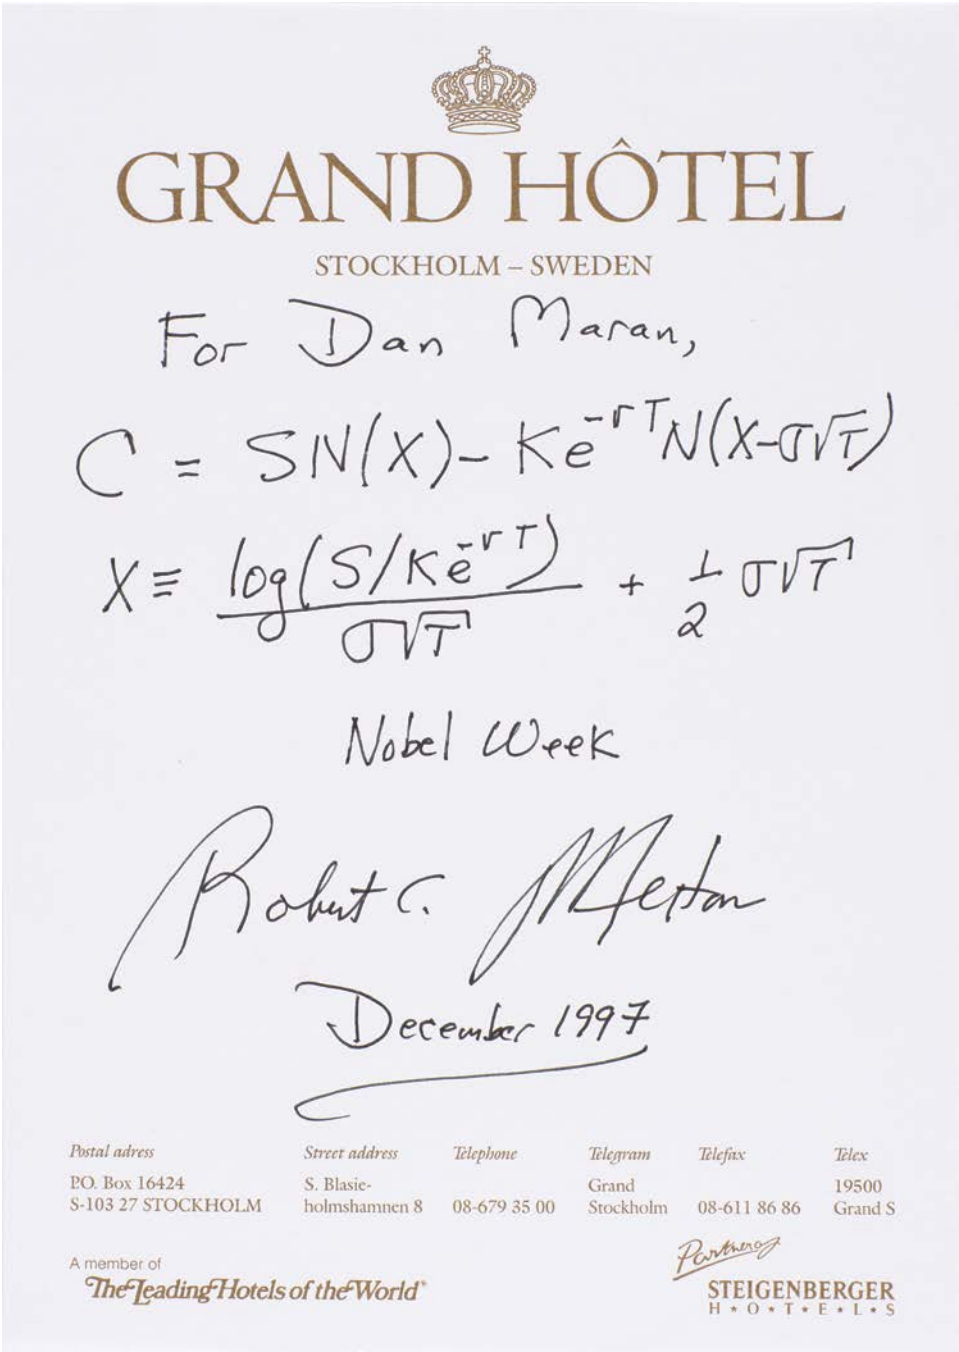 GRAND HÔTEL
STOCKHOLM – SWEDEN
For Dan Maran,
C = SN(X) - Ke^-rT N(X-σ√T)
X ≡ log(S/Ke^-rT) / σ√T + 1/2 σ√T
Nobel Week
Robert C. Merton
December 1997
Postal adress Street address Telephone Telegram Telefax Telex
P.O. Box 16424 S. Blasie- Grand 19500
S-103 27 STOCKHOLM holmshamnen 8 08-679 35 00 Stockholm 08-611 86 86 Grand S
A member of
The Leading Hotels of the World®
Partner of
STEIGENBERGER
H★O★T★E★L★S